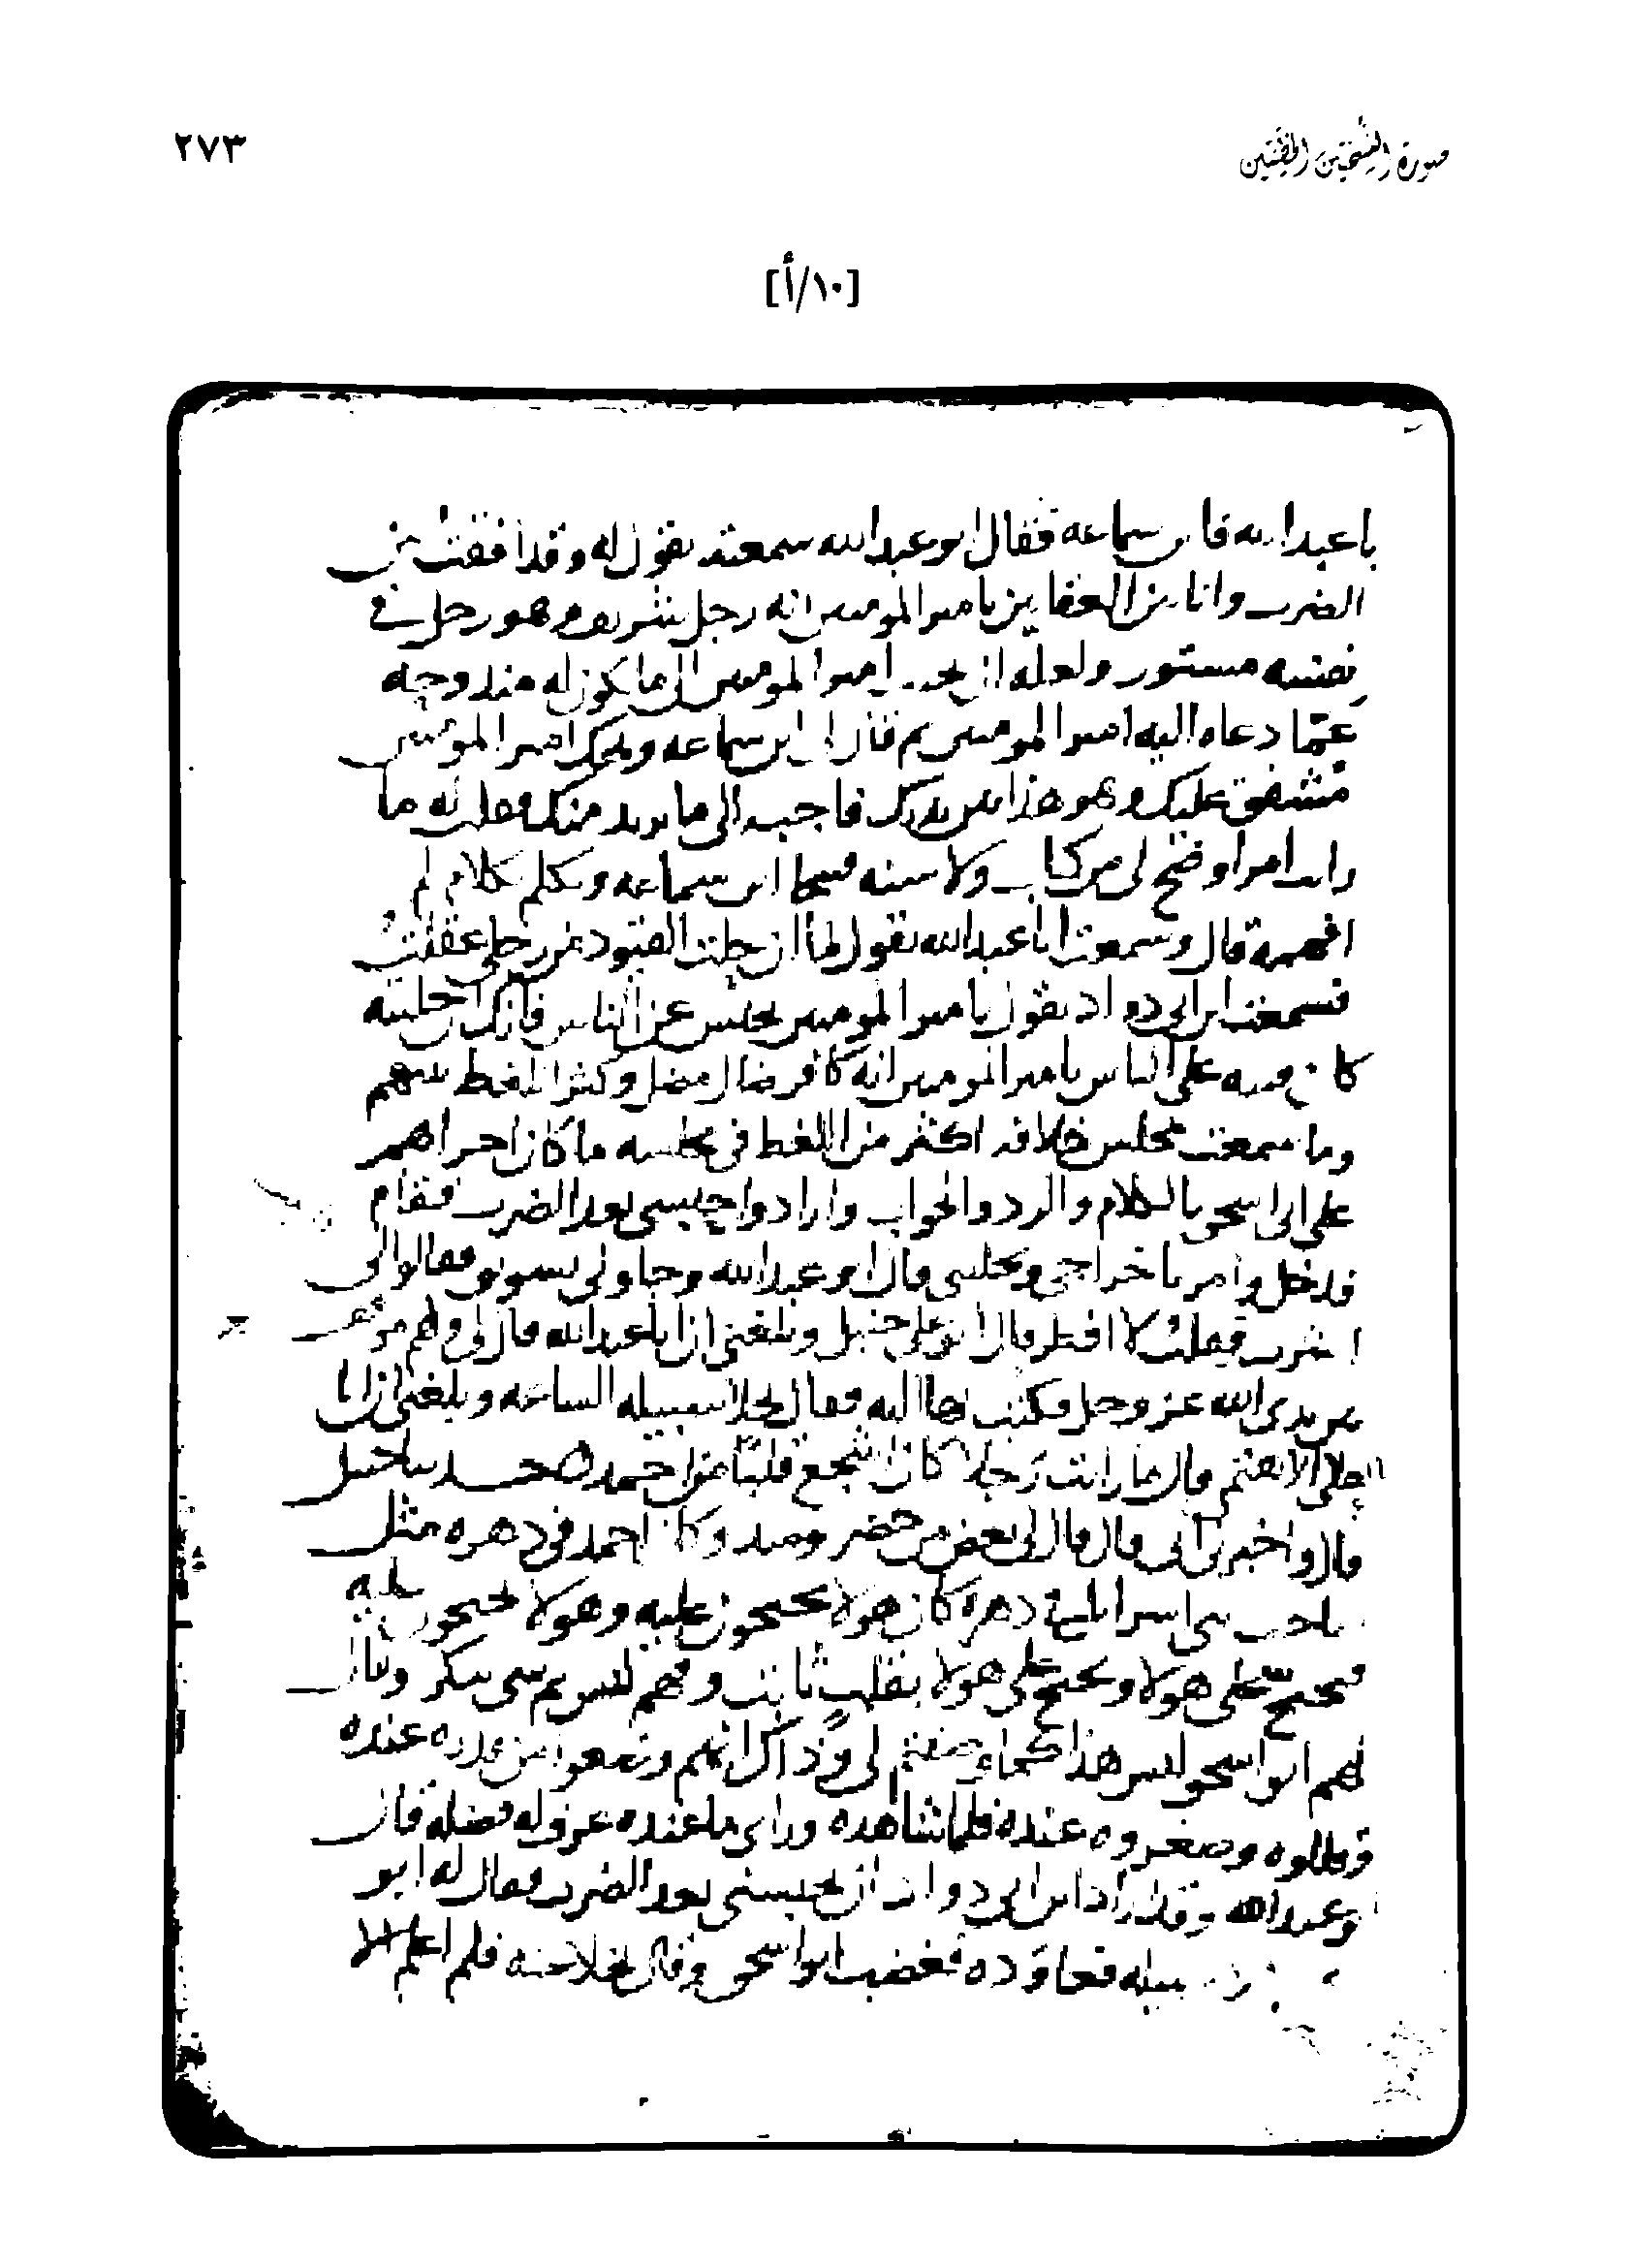 صورة النسختين الخطيتين
٢٧٣
[١٠/أ]
يا عبد الله فا بن سماعه فقال ابو عبد الله سمعته يقول له وقد افقت من
الضرب وانا بين العقابين يا امير المومنين انه رجل شريف وهو رجل في
نفسه مستور ولعله ان يجيب امير المومنين الى ما يكون له منه وجه
عما دعاه اليه امير المومنين ثم قال لى ابن سماعه ويحك امير المومنين
مشفق عليك وهو هذا بين يديك فاجبه الى ما يريد منك فقلت له ما
رايت امرا وضح لى من كتاب ولا سنه فتنحا ابن سماعه وتكلم بكلام لم
افهمه قال وسمعت ابا عبد الله يقول لما ان حلت القيود من رجلي عقلت
فسمعت ابن ابى دواد يقول يا امير المومنين يحبس عن الناس فانك ان خليته
كان فتنه على الناس يا امير المومنين انه كافر ضال مضل وكثر اللغط منهم
وما سمعت مجلس خلافه اكثر من اللغط فى مجلسه ما كان اجراهم
على ابى اسحق بالكلام والرد والجواب وارادوا حبسى بعد الضرب فقام
فدخل وامر باخراجى وتخليتى قال ابو عبد الله وجاونى بسويق فقالوا لى
اشرب فقلت لا افطر قال ابو على حنبل وبلغنى ان ابا عبد الله قال لى ولهم موقف
بين يدى الله عز وجل فكتب بها اليه فقال يخلا سبيله الساعه وبلغنى ان ابا
قال ما رايت رجلا كان اشجع قلبا من احمد بن حنبل
قال واخبرنى ابى قال قال لى بعض من حضر وكان احمد فى دهره مثل
صاحب بنى اسرايل فى دهره كان هولا يحتجون عليه وهولا يحتجون عليه
فيحتج على هولا ويحتج على هولا بقلب ثابت وفهم ليس ثم شى ينكر وقال
لهم ابو اسحق ليس هذا كما وصفتم لى وذاك انهم وضعوا من قدره عنده
وقللوه وصغروه عنده فلما شاهده وراى ما عنده عرف له فضله قال
ابو عبد الله وقد اراد ابن ابى دواد ان يحبسنى بعد الضرب فقال له ابو
سبيله فعاوده فغضب ابو اسحق وقال خلا عنه فلم اعلم الا